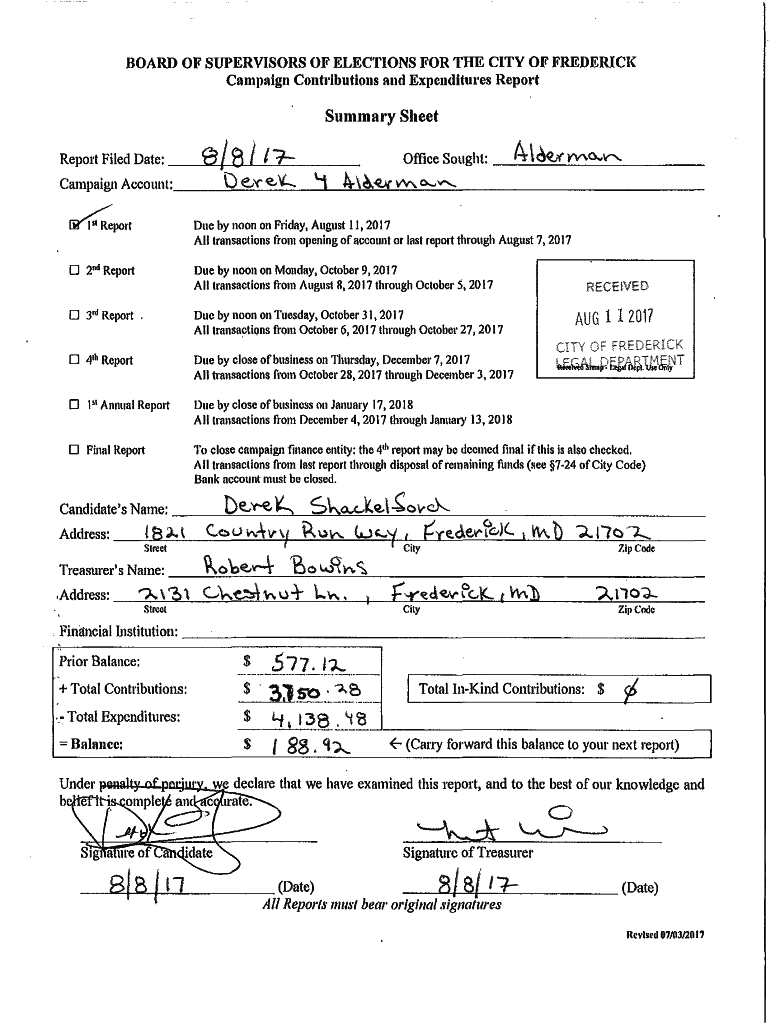 BOARD OF SUPERVISORS OF ELECTIONS FOR THE CITY OF FREDERICK
Campaign Contributions and Expenditures Report
Summary Sheet
Report Filed Date: 8/8/17 Office Sought: Alderman
Campaign Account: Derek 4 Alderman
☑ 1st Report Due by noon on Friday, August 11, 2017
All transactions from opening of account or last report through August 7, 2017
☐ 2nd Report Due by noon on Monday, October 9, 2017
All transactions from August 8, 2017 through October 5, 2017
☐ 3rd Report Due by noon on Tuesday, October 31, 2017
All transactions from October 6, 2017 through October 27, 2017
☐ 4th Report Due by close of business on Thursday, December 7, 2017
All transactions from October 28, 2017 through December 3, 2017
RECEIVED
AUG 11 2017
CITY OF FREDERICK
LEGAL DEPARTMENT
Received Stamp - Legal Dept. Use Only
☐ 1st Annual Report Due by close of business on January 17, 2018
All transactions from December 4, 2017 through January 13, 2018
☐ Final Report To close campaign finance entity: the 4th report may be deemed final if this is also checked.
All transactions from last report through disposal of remaining funds (see §7-24 of City Code)
Bank account must be closed.
Candidate's Name: Derek Shackelford
Address: 1821 Country Run Way, Frederick, MD 21702
Street City Zip Code
Treasurer's Name: Robert Bowins
Address: 2131 Chestnut Ln., Frederick, MD 21702
Street City Zip Code
Financial Institution:
Prior Balance: $ 577.12
+ Total Contributions: $ 3,750.28 Total In-Kind Contributions: $ ∅
- Total Expenditures: $ 4,138.48
= Balance: $ 188.92 ← (Carry forward this balance to your next report)
Under penalty of perjury, we declare that we have examined this report, and to the best of our knowledge and
belief it is complete and accurate.
Signature of Candidate Signature of Treasurer
8/8/17 (Date) 8/8/17 (Date)
All Reports must bear original signatures
Revised 07/03/2017